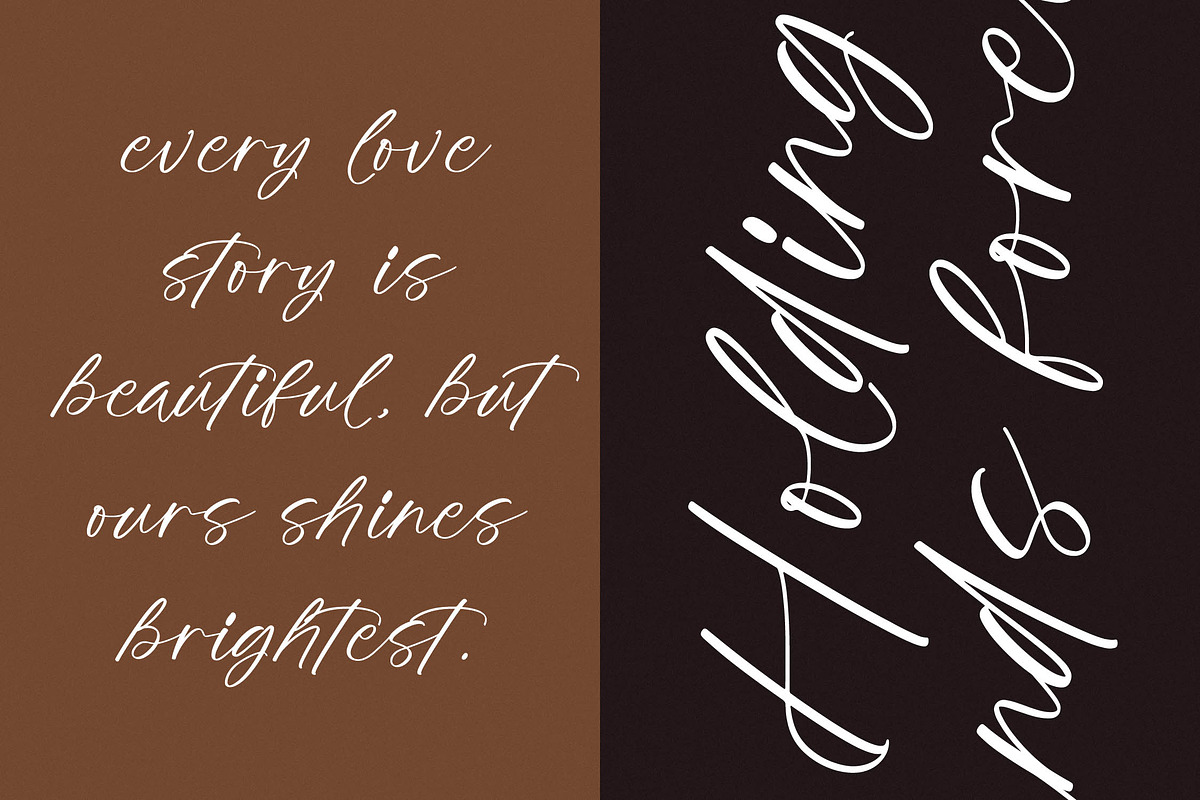 every love
story is
beautiful, but
ours shines
brightest.
Holding
nds fore